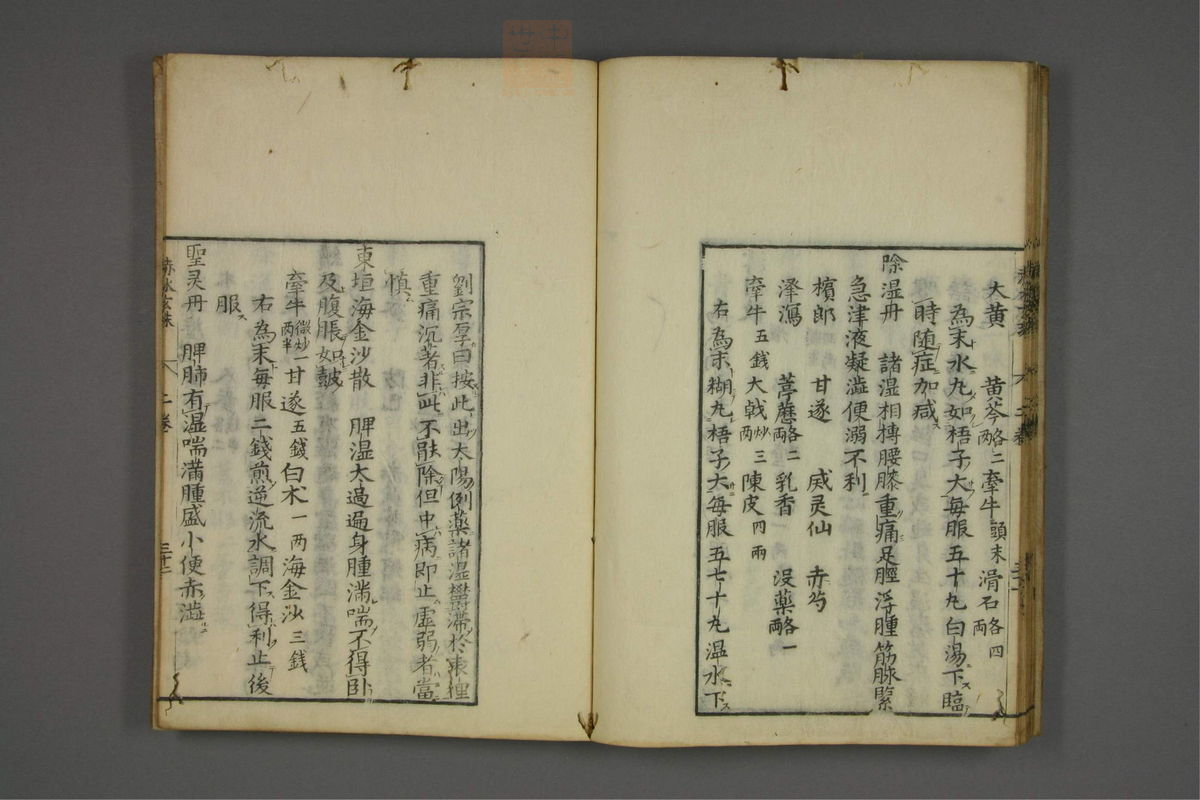 大黄　黄芩各二両　牽牛頭末　滑石各四両
為末水丸如梧子大毎服五十丸白湯下臨
時随症加减
除湿丹　諸湿相搏腰膝重痛足脛浮腫筋脉緊
急津液凝澁便溺不利
檳郎　甘遂　威灵仙　赤芍
澤瀉　葶藶各二両　乳香　没薬各一両
牽牛五銭　大戟炒三両　陳皮四兩
右為末糊丸梧子大毎服五七十丸温水下
劉宗厚曰按此出太陽例薬諸湿欝滞於表裡
重痛沉著非此不能除但中病即止虚弱者當
慎
東垣海金沙散　脾湿太過遍身腫満喘不得卧
及腹脹如皷
牽牛微炒一両半　甘遂五銭　白朮一両　海金沙三銭
右為末毎服二銭煎逆流水調下得利止後
服
聖灵丹　脾肺有湿喘満腫盛小便赤澁
赤水玄珠　二卷